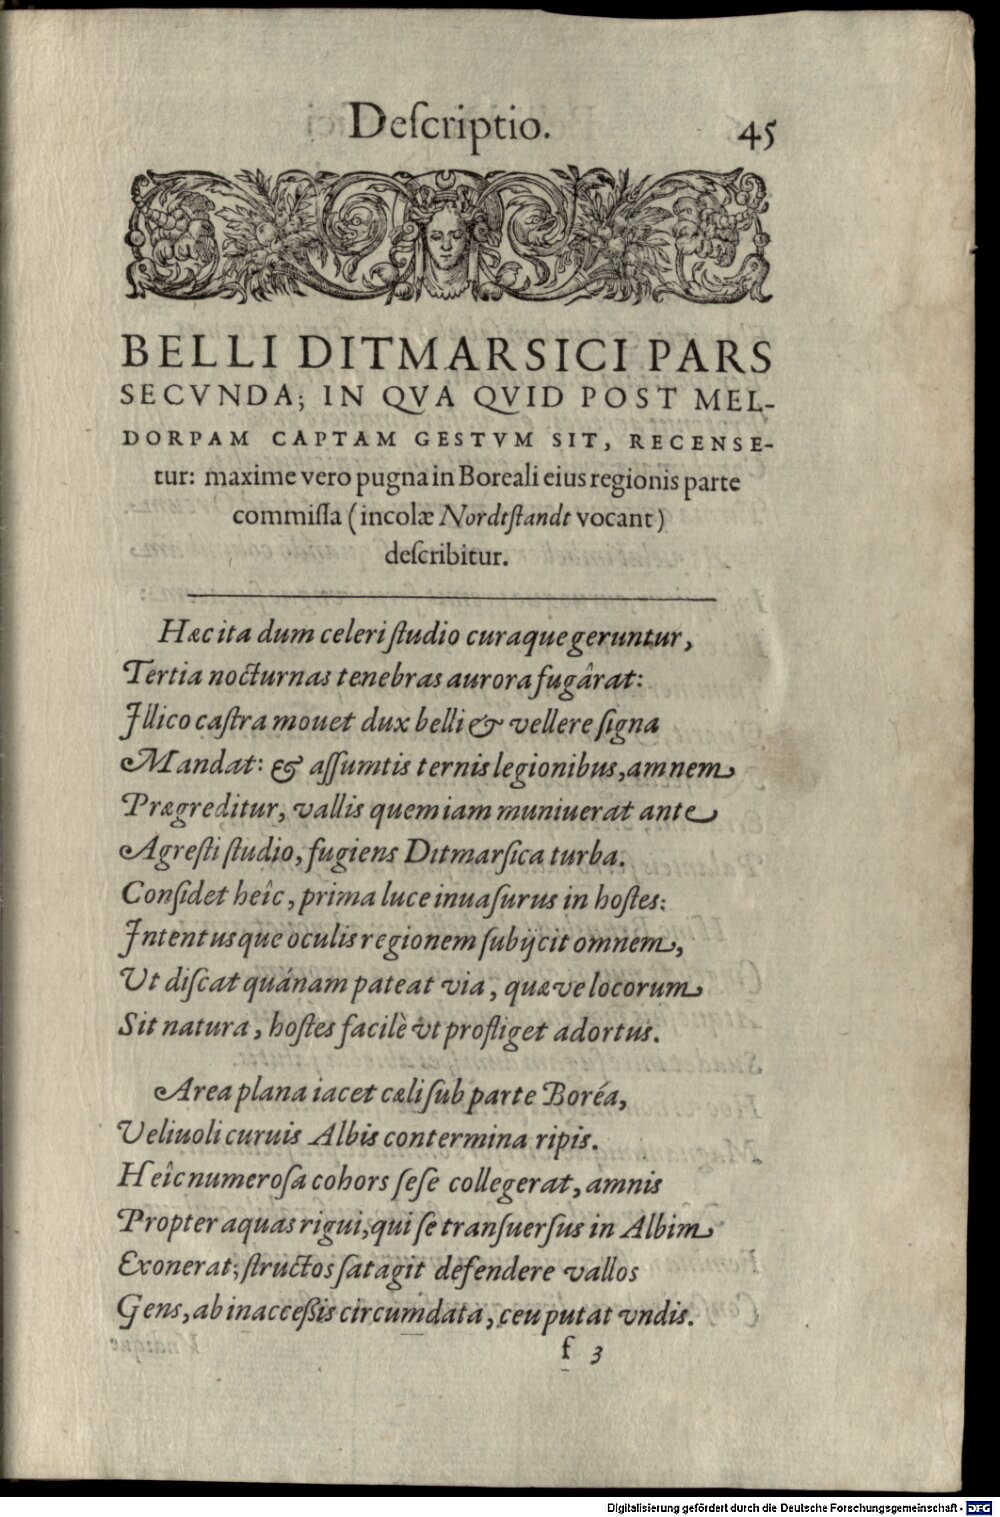 Deſcriptio. 45
BELLI DITMARSICI PARS
SECVNDA; IN QVA QVID POST MEL-
DORPAM CAPTAM GESTVM SIT, RECENSE-
tur: maxime vero pugna in Boreali eius regionis parte
commiſſa (incolæ Nordtſtandt vocant)
deſcribitur.
Hæc ita dum celeri ſtudio curaque geruntur,
Tertia nocturnas tenebras aurora fugârat:
Illico caſtra mouet dux belli & vellere ſigna
Mandat: & aſſumtis ternis legionibus, amnem
Prægreditur, vallis quem iam muniuerat ante
Agreſti ſtudio, fugiens Ditmarſica turba.
Conſidet heîc, prima luce inuaſurus in hoſtes:
Intentusque oculis regionem ſubijcit omnem,
Ut diſcat quánam pateat via, quæve locorum
Sit natura, hoſtes facilè vt profliget adortus.
Area plana iacet cæli ſub parte Boréa,
Veliuoli curuis Albis contermina ripis.
Heîc numeroſa cohors ſeſe collegerat, amnis
Propter aquas rigui, qui ſe tranſuerſus in Albim
Exonerat; ſtructos ſatagit defendere vallos
Gens, ab inacceßis circumdata, ceu putat vndis.
f 3
Digitalisierung gefördert durch die Deutsche Forschungsgemeinschaft - DFG